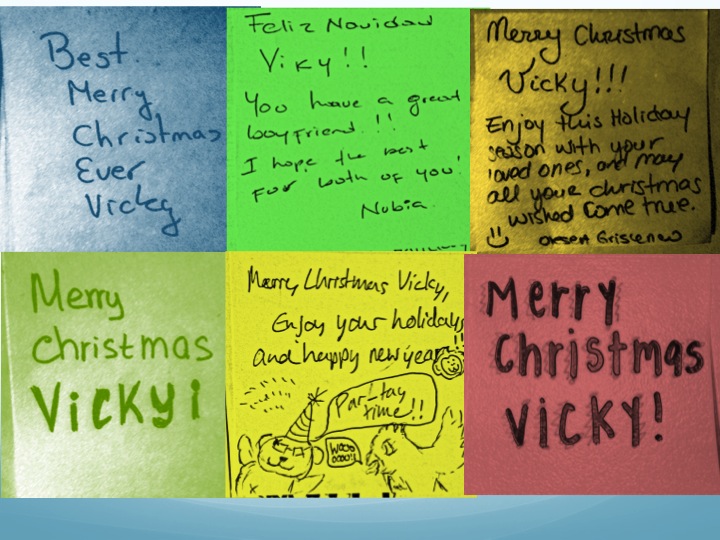 Best
Merry
Christmas
Ever
Vicky
Feliz Navidad
Viky!!
You have a great
boyfriend.!!
I hope the best
for both of you!
Nubia.
Merry Christmas
Vicky!!!
Enjoy this Holiday
season with your
loved ones, and may
all your christmas
wished come true.
Merry
Christmas
Vicky!
Merry Christmas Vicky,
Enjoy your holidays
and happy new year!!
Par-tay
time!!
Wooo
oooo!!
Merry
Christmas
Vicky!